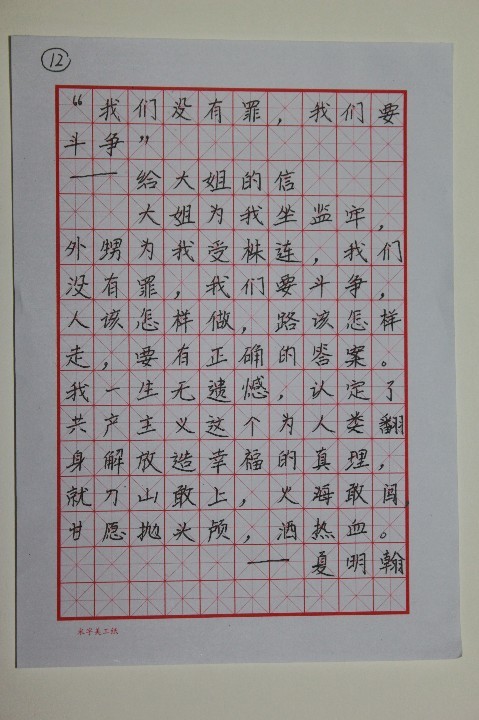 12
“我们没有罪，我们要
斗争”
——给大姐的信
大姐为我坐监牢，
外甥为我受株连，我们
没有罪，我们要斗争，
人该怎样做，路该怎样
走，要有正确的答案。
我一生无遗憾，认定了
共产主义这个为人类翻
身解放造幸福的真理，
就刀山敢上，火海敢闯，
甘愿抛头颅，洒热血。
——夏明翰
米字美工纸